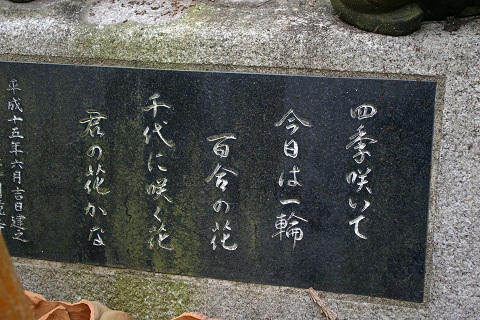 四季咲いて
今日は一輪
百合の花
千代に咲く花
君の花かな
平成十五年六月吉日建之